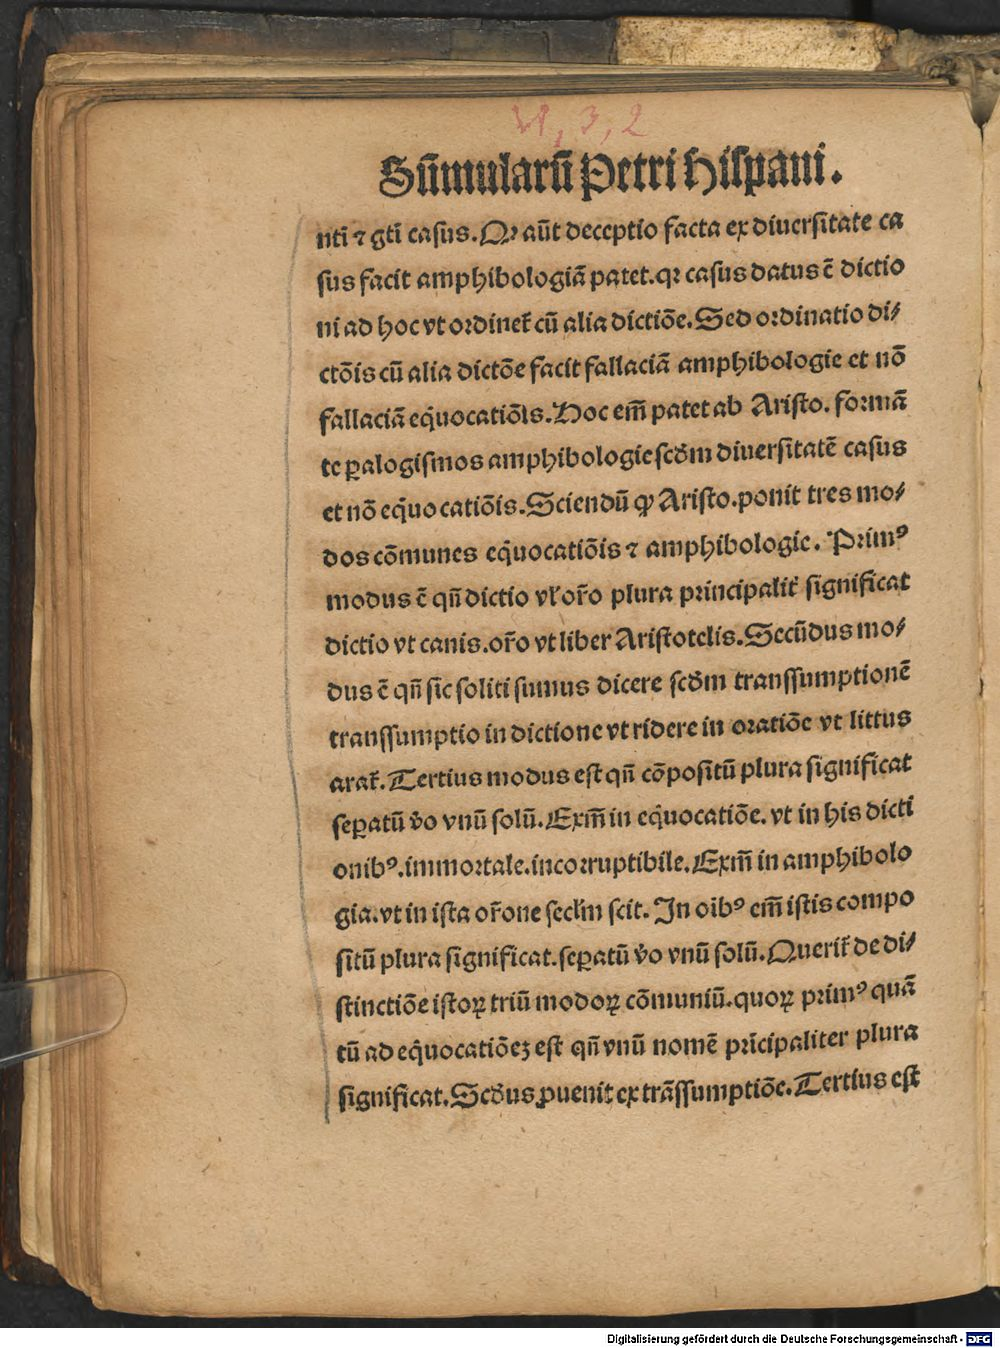 VI, 3, 2
Sūmularū Petri Hispani.
nti ⁊ gti casus. Qꝛ aūt deceptio facta ex diuersitate ca
sus facit amphibologiā patet. qꝛ casus datus ē dictio
ni ad hoc vt oꝛdinet̄ cū alia dictiōe. Sed oꝛdinatio di⸗
ctōis cū alia dictōe facit fallaciā amphibologie et nō
fallaciā equocatiōis. Hoc em̄ patet ab Aristo. foꝛmā
te ꝑalogismos amphibologie scd̄m diuersitatē casus
et nō equocatiōis. Sciendū ꝙ Aristo. ponit tres mo⸗
dos cōmunes equocatiōis ⁊ amphibologie. Primꝰ
modus ē qn̄ dictio vl̓ or̄o plura principalit̄ significat
dictio vt canis. or̄o vt liber Aristotelis. Secūdus mo⸗
dus ē qn̄ sic soliti sumus dicere scd̄m transsumptionē
transsumptio in dictione vt ridere in oꝛatiōe vt littus
arat̄. Tertius modus est qn̄ cōpositū plura significat
seꝑatū v̄o vnū solū. Exm̄ in equocatiōe. vt in his dicti
onibꝰ. immoꝛtale. incoꝛruptibile. Exm̄ in amphibolo
gia. vt in ista or̄one secl̄m scit. In oībꝰ em̄ istis compo
sitū plura significat. seꝑatū v̄o vnū solū. Querit̄ de di⸗
stinctiōe istoꝝ triū modoꝝ cōmuniū. quoꝝ primꝰ quā
tū ad equocatiōeꝫ est qn̄ vnū nomē pricipaliter plura
significat. Scd̄us ꝓuenit ex trāssumptiōe. Tertius est
Digitalisierung gefördert durch die Deutsche Forschungsgemeinschaft - DFG